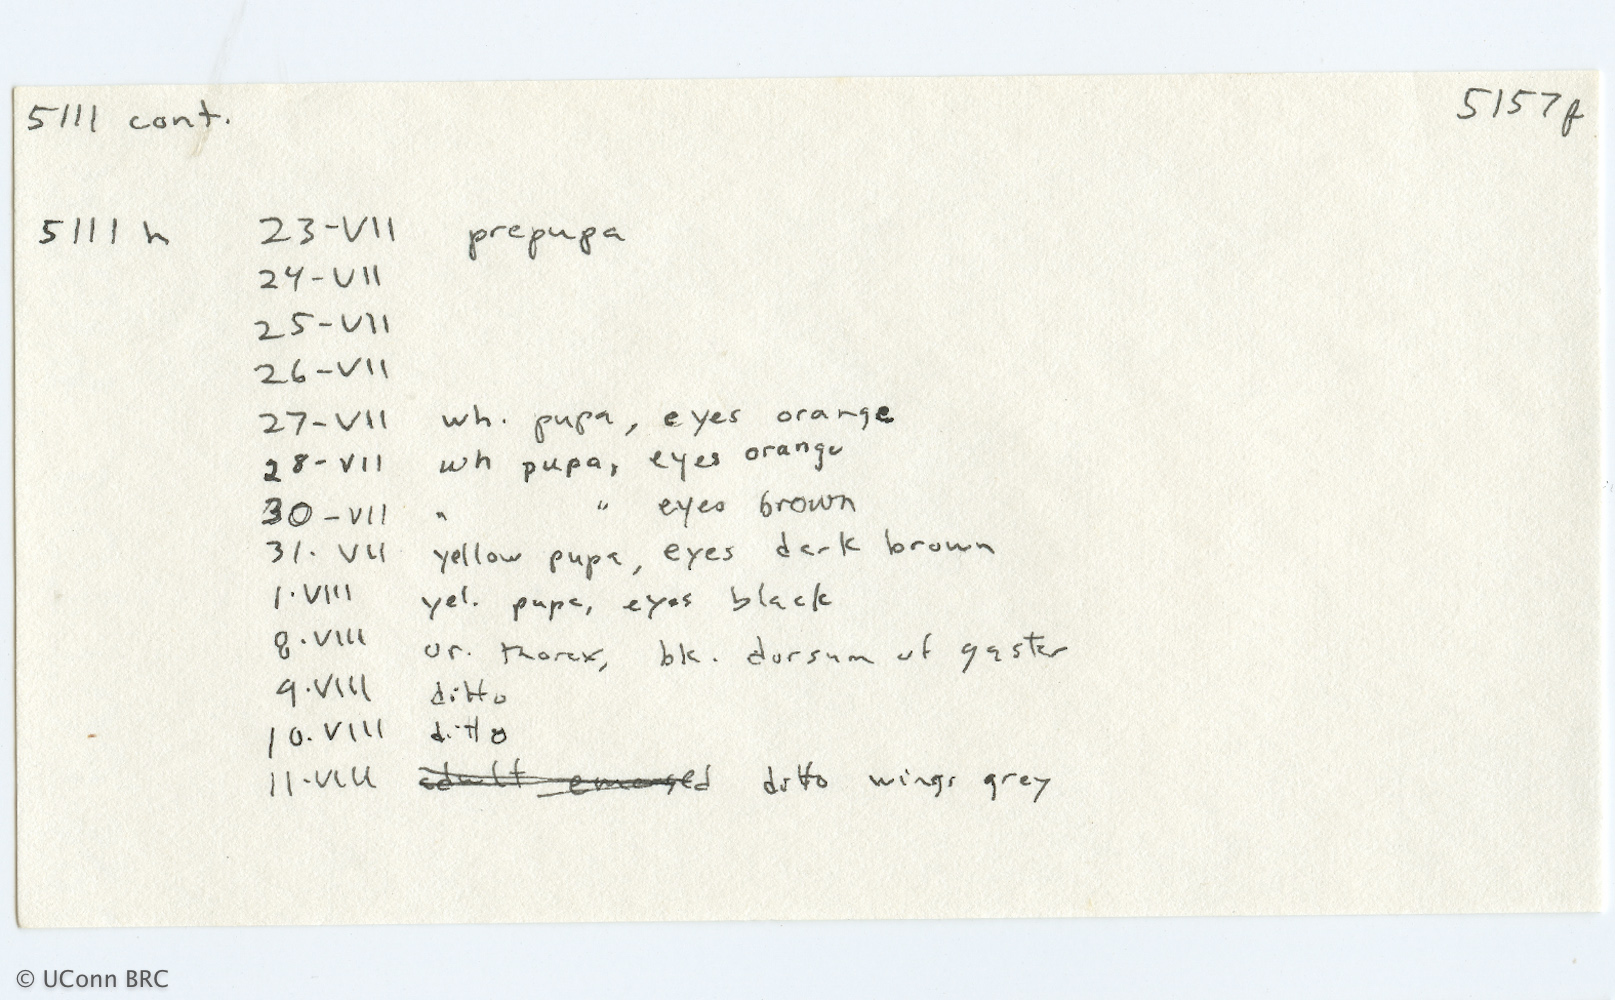 5111 cont. 5157f
5111 h 23-VII prepupa
24-VII
25-VII
26-VII
27-VII wh. pupa, eyes orange
28-VII wh pupa, eyes orange
30-VII " " eyes brown
31. VII yellow pupa, eyes dark brown
1.VIII yel. pupa, eyes black
8.VIII or. thorax, bk. dorsum of gaster
9.VIII ditto
10.VIII ditto
11.VIII adult emerged ditto wings grey
© UConn BRC